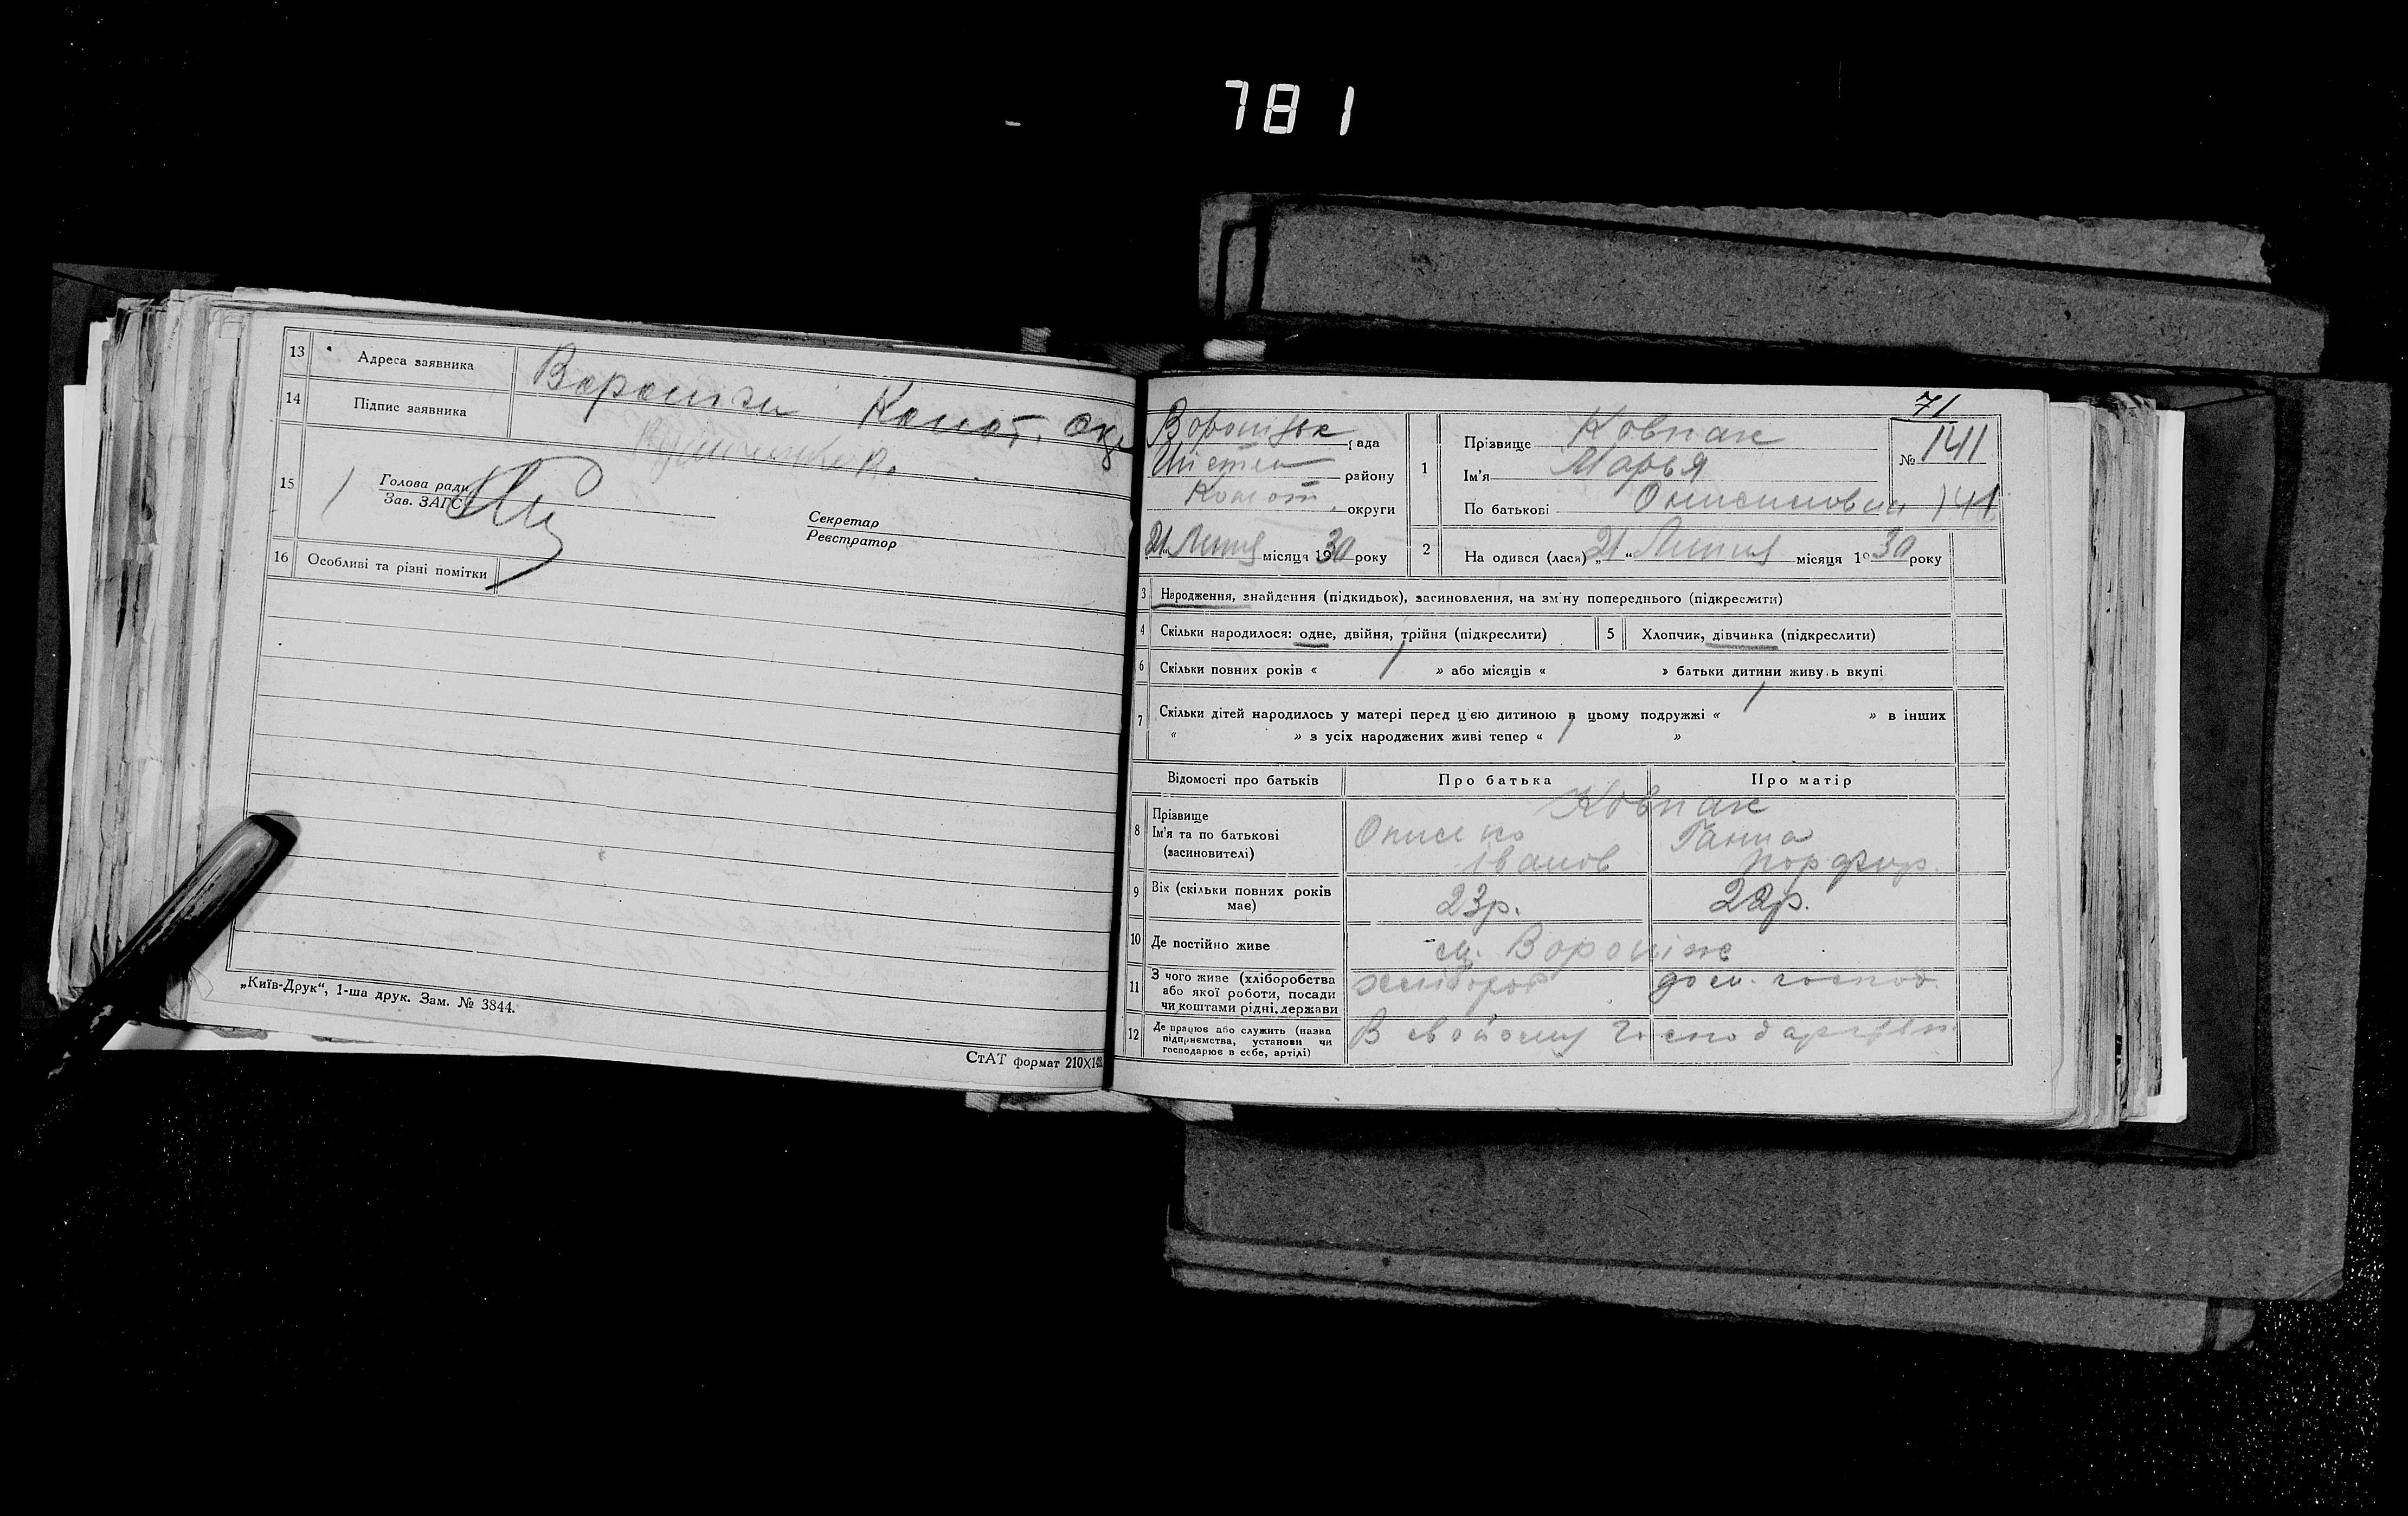 781
13 Адреса заявника Вороніж Конот. окр
14 Підпис заявника
15 Голова ради
Зав. ЗАГС
Секретар
Реєстратор
16 Особливі та різні помітки
„Київ-Друк“, 1-ша друк. Зам. № 3844.
СтАТ формат 210×148
71
рада
району
Конот. округи
21 Липня місяця 1930 року
№ 141
1 Прізвище Ковпак
Ім'я Марья
По батькові Онисимовна 141
2 На одився (лася) „21“ Липня місяця 1930 року
3 Народження, знайдення (підкидьок), засиновлення, на зм'ну попереднього (підкреслити)
4 Скільки народилося: одне, двійня, трійня (підкреслити)
5 Хлопчик, дівчинка (підкреслити)
6 Скільки повних років « 1 » або місяців « » батьки дитини живуть вкупі
7 Скільки дітей народилось у матері перед цією дитиною в цьому подружжі « 1 » в інших
« » з усіх народжених живі тепер « 1 »
Відомості про батьків Про батька Про матір
8 Прізвище Ковпак
Ім'я та по батькові
(засиновителі)
Іванов
Ганна
Порфир.
9 Вік (скільки повних років має) 23р. 22р.
10 Де постійно живе м. Вороніж
11 З чого живе (хліборобства або якої роботи, посади чи коштами рідні, держави
хлібороб дом. господ.
12 Де працює або служить (назва підприємства, установи чи господарює в себе, артілі)
В свойому господарстві